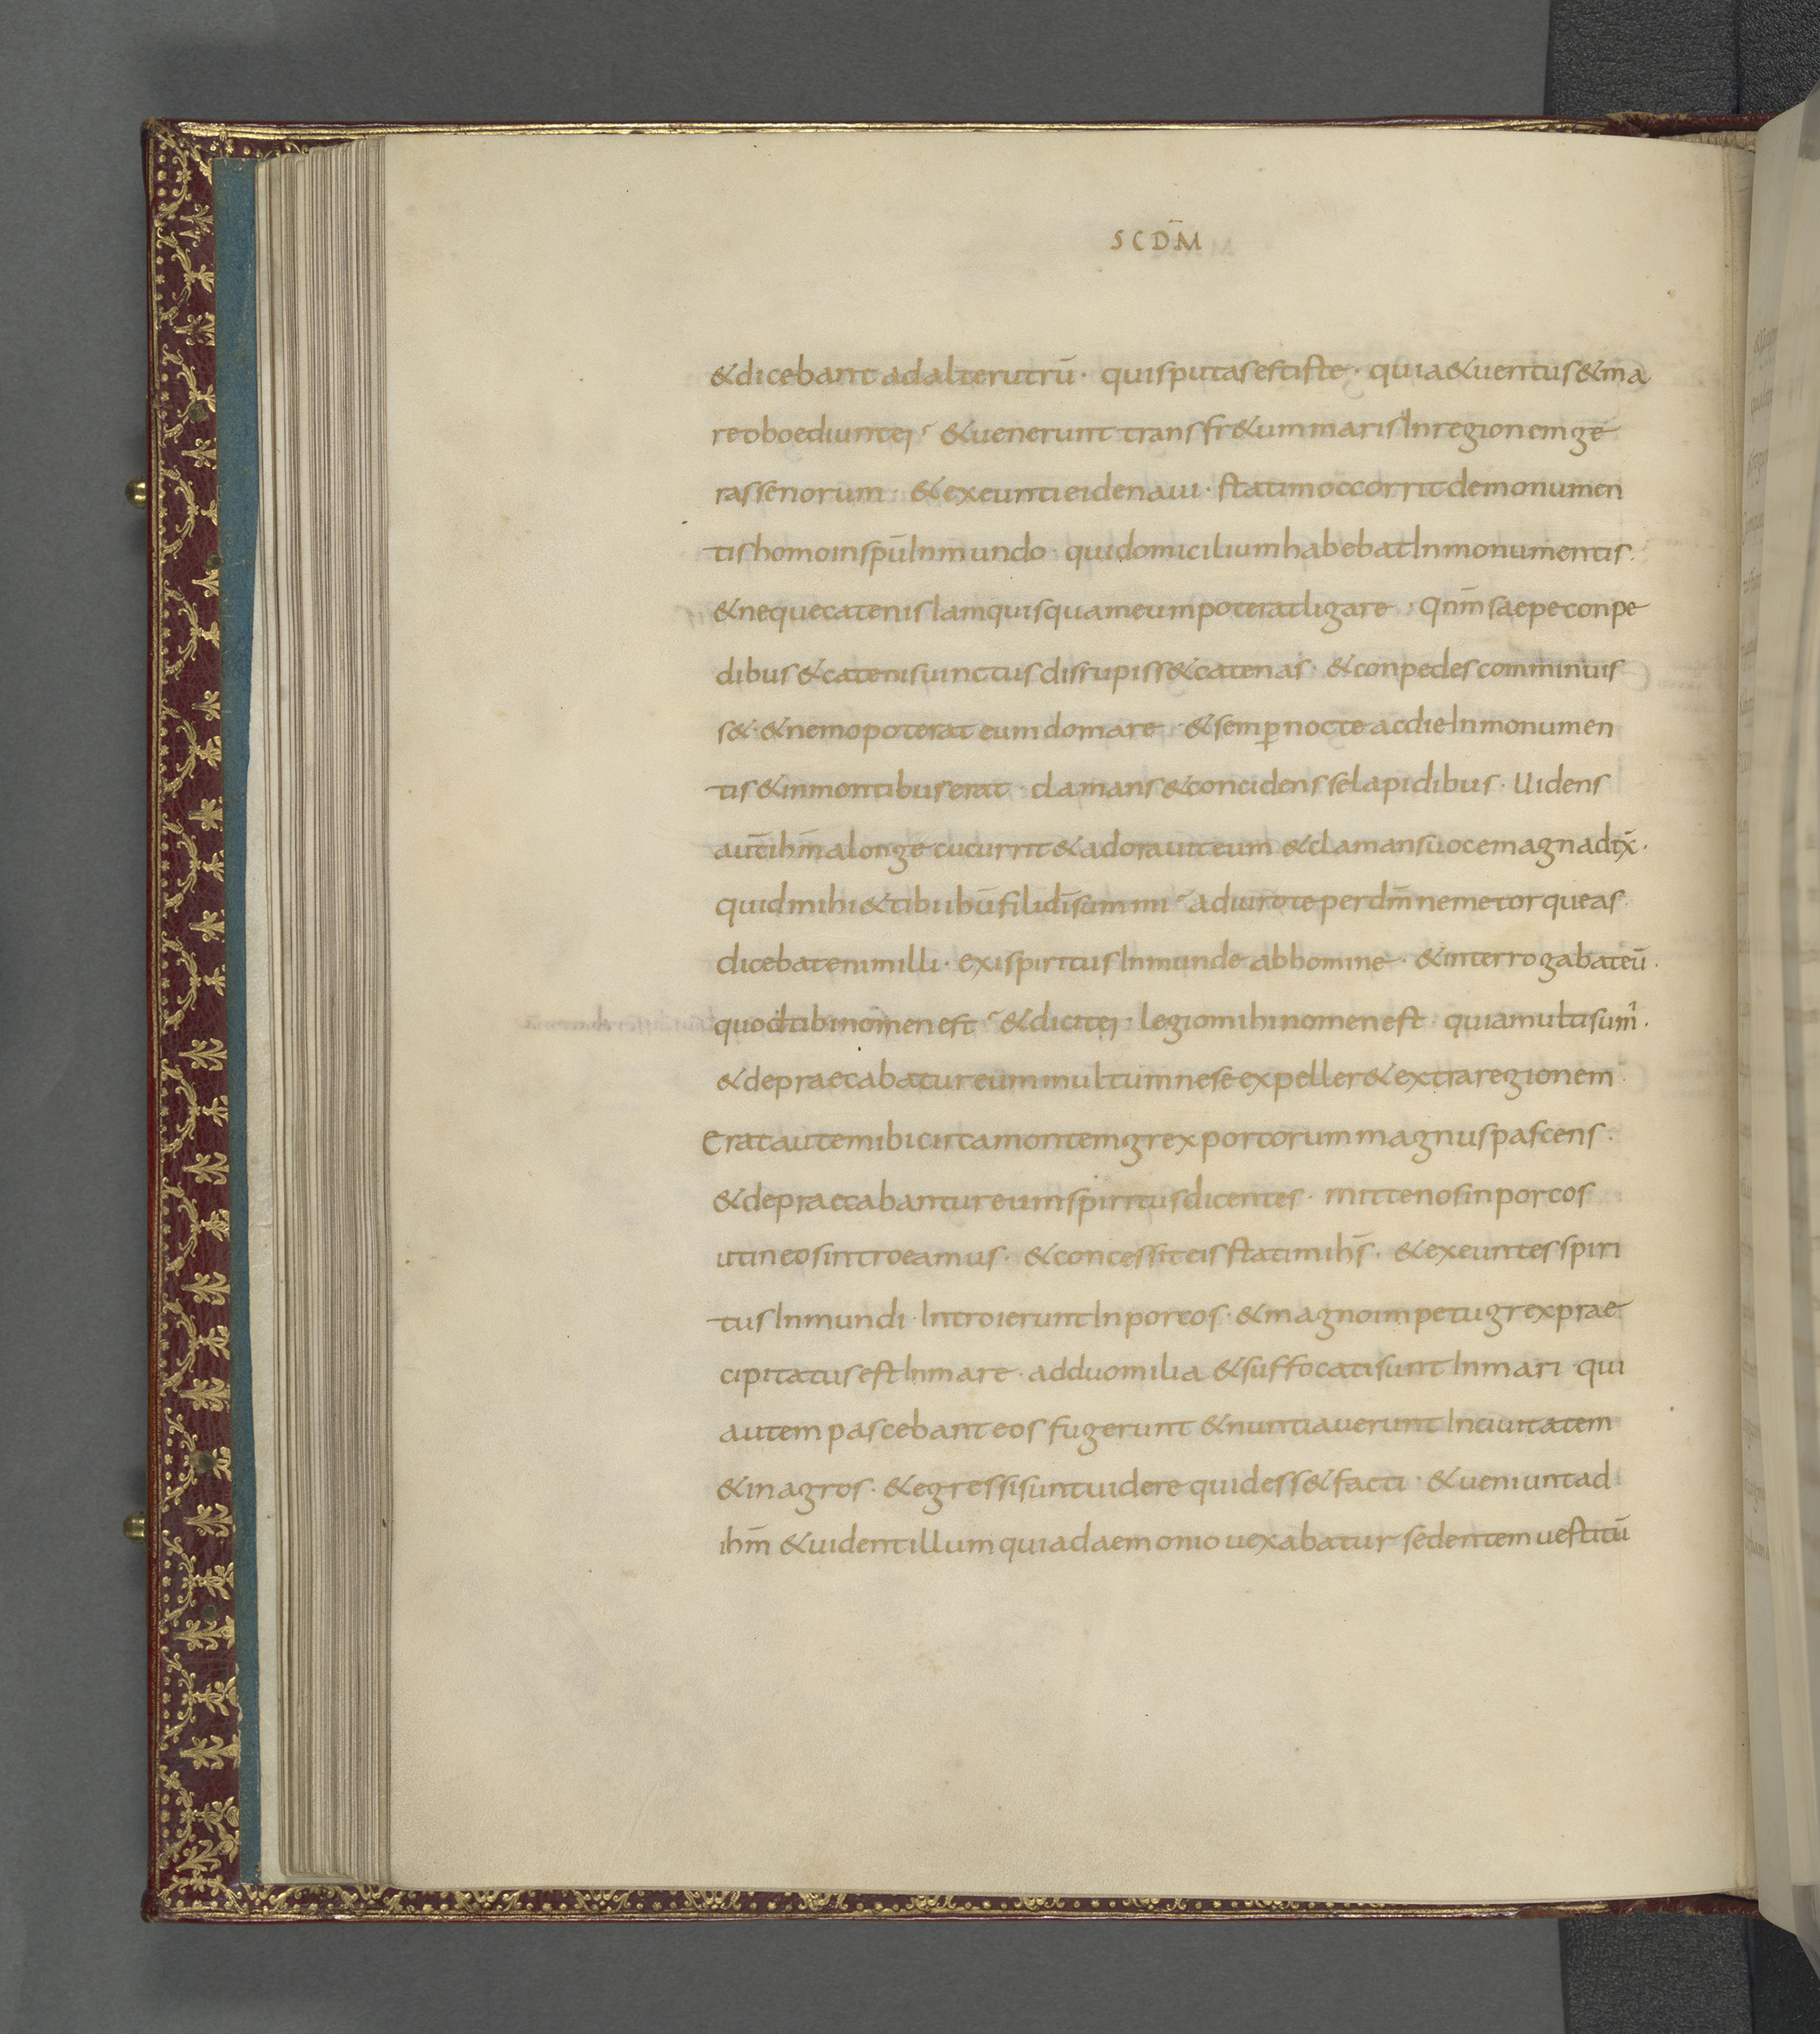 SCDM̄
&dicebant adalterutrū· quisputasestiste· quia&uentus&ma
reoboediuntei· &uenerunt transfr&ummarisInregionemge
rassenorum· &exeuntieidenaui· statimoccorritdemonumen
tishomoinspūInmundo· quidomiciliumhabebatInmonumentis·
&nequecatenisIamquisquameumpoteratligare· Qnm̄saepeconpe
dibus&catenisuinctusdisrupiss&catenas· &conpedescomminuis
s&·&nemopoterat eumdomare· &semp̱nocte acdieInmonumen
tis&inmontibuserat· clamans&concidensselapidibus· Uidens
aut̄ihm̄alonge cucurrit&adorauiteum &clamansuocemagnadix̄·
quidmihi&tibiihūfilidīsummi· adiuroteperdm̄nemetorqueas·
dicebatenimilli· exispiritusInmunde abhomine· &interrogabateū·
quodtibinomenest· &dicitei· legiomihinomenest· quiamultisum'·
&depraecabatureummultumneseexpeller&extraregionem·
Eratautemibicircamontemgrexporcorummagnuspascens·
&depraecabantureumspiritusdicentes· mittenosinporcos
utineosintroeamus· &concessiteisstatimihs̄· &exeuntesspiri
tusInmundi·IntroieruntInporcos·&magnoimpetugrexprae
cipitatusestInmare· adduomilia &suffocatisuntInmari·qui
autempascebanteosfugerunt &nuntiaueruntInciuitatem
&inagros·&egressisuntuiderequidess&facti· &ueniuntad
ihm̄ &uidentillumquiadaemoniouexabatur sedentemuestitū